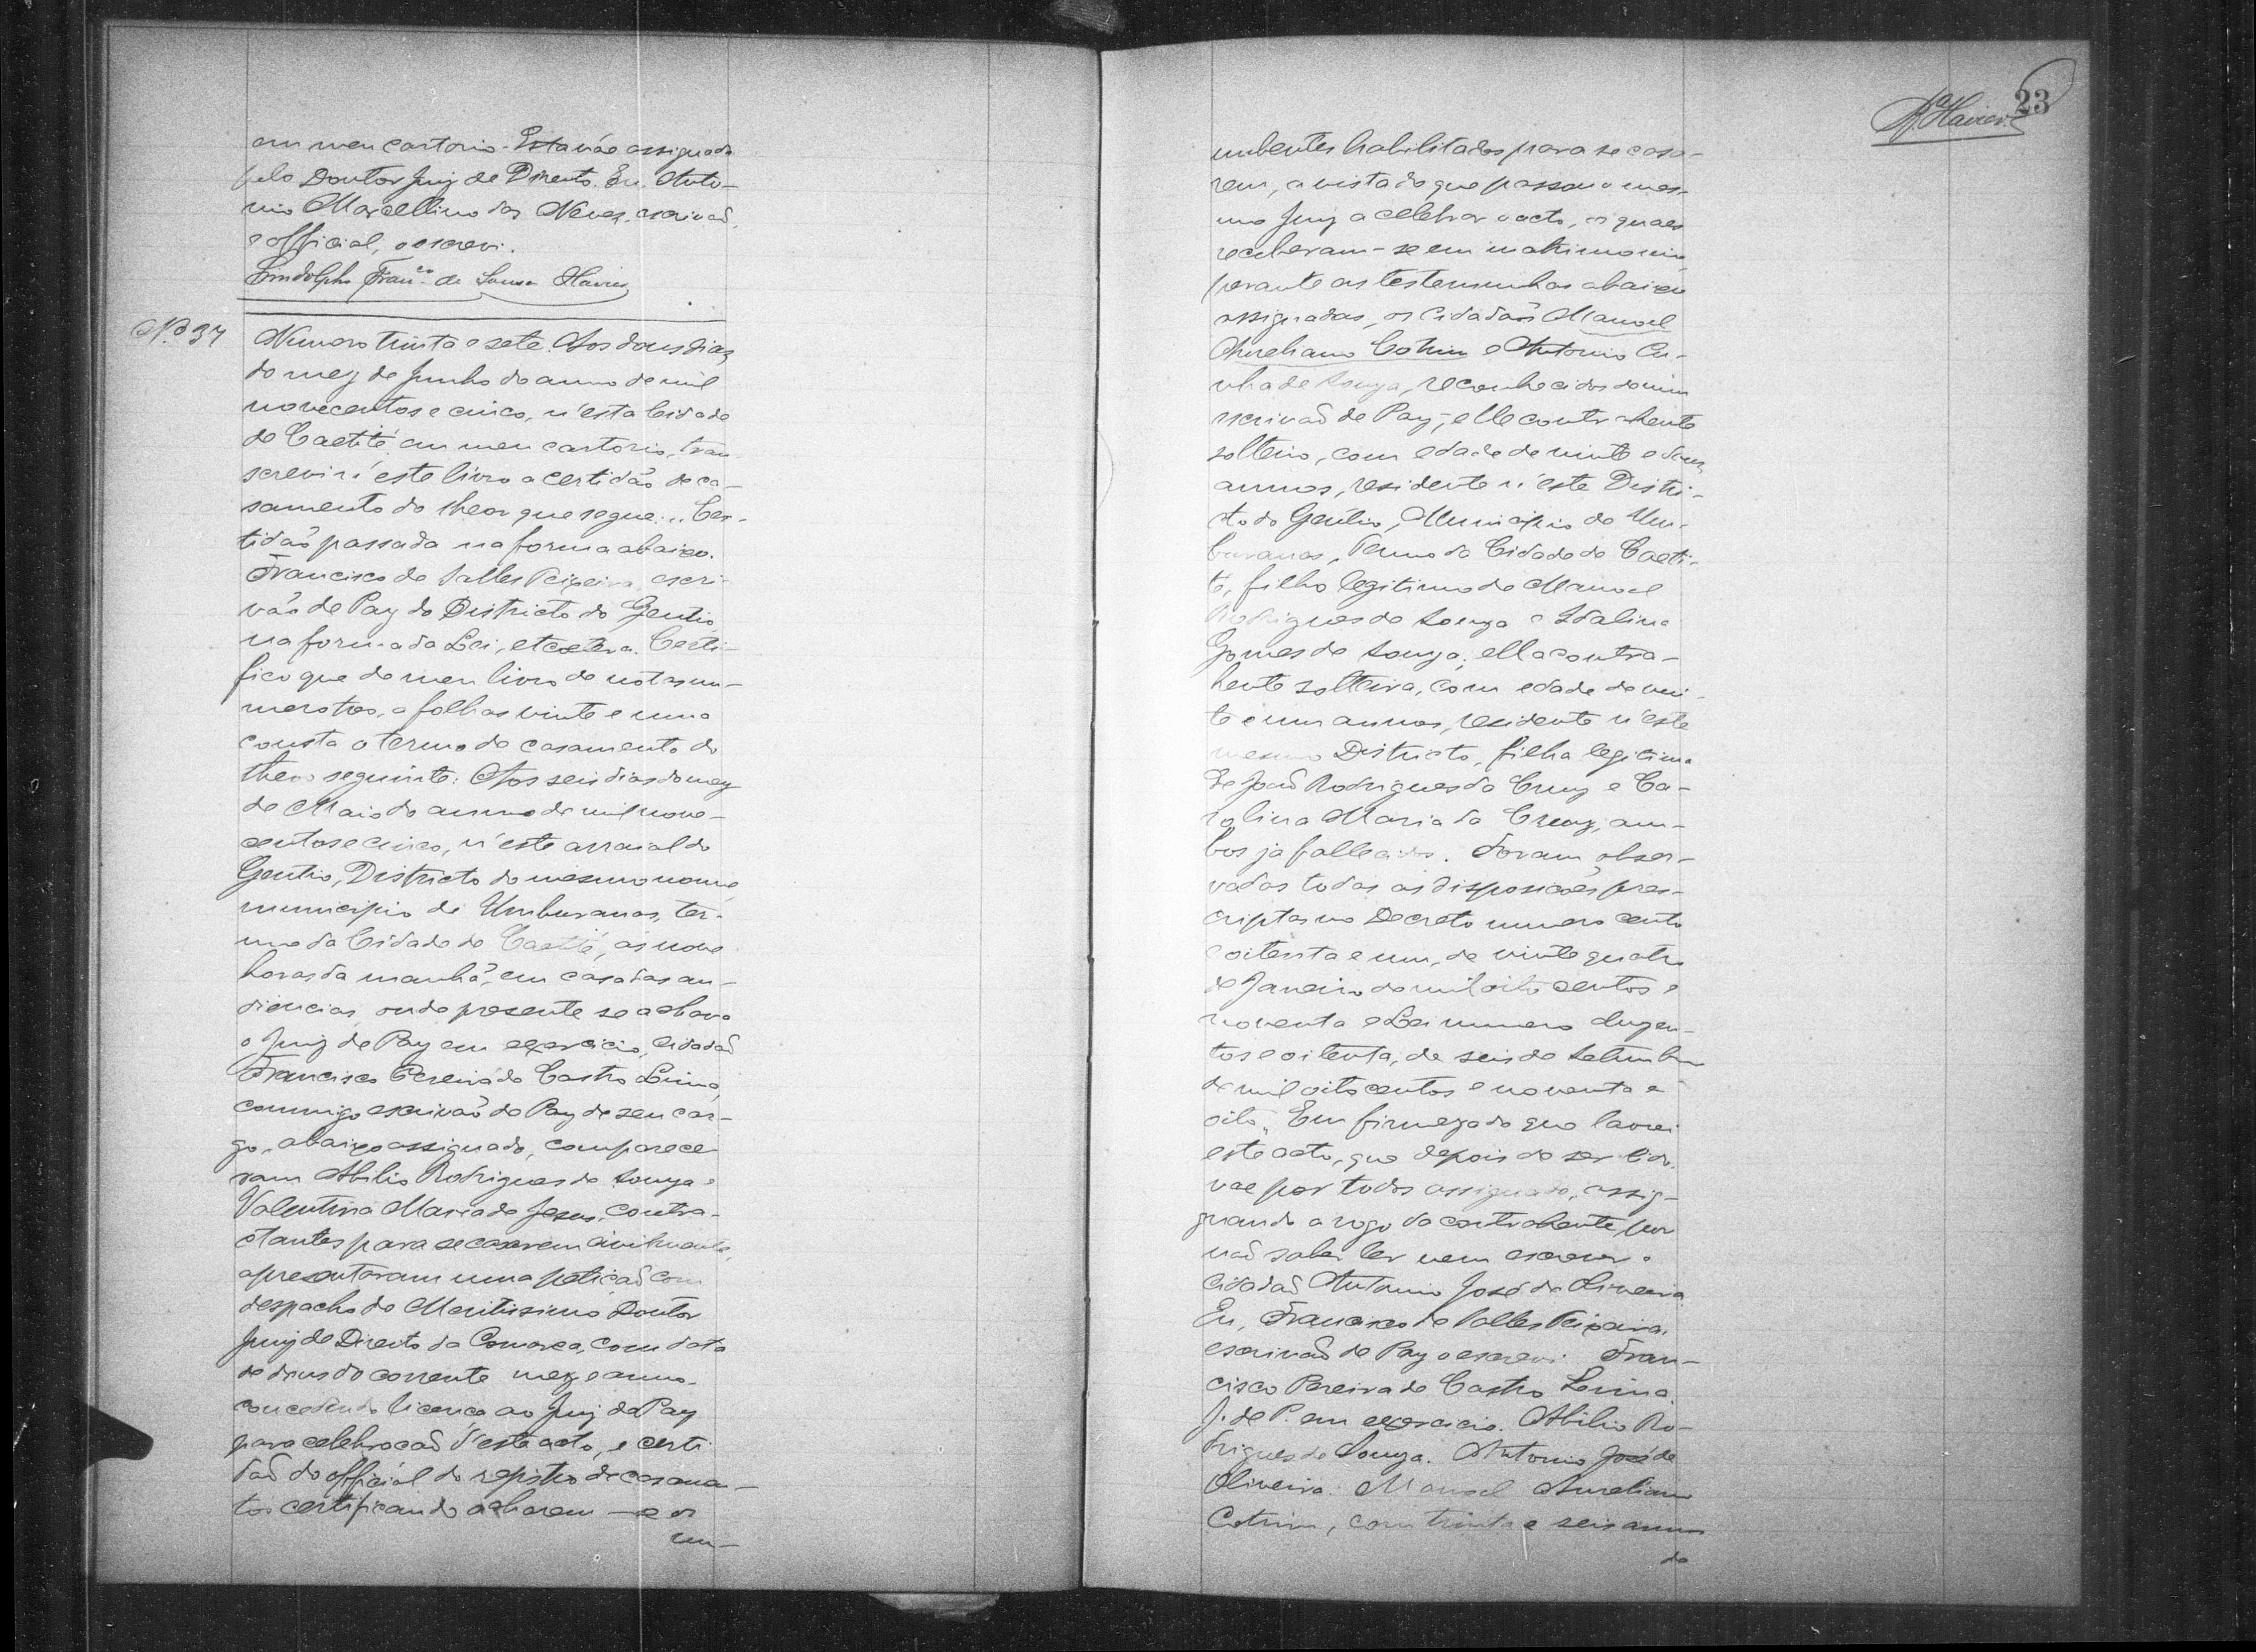 em meu cartorio. Estavão assignada
pelo Doutor Juiz de Direito. Eu, Anto-
nio Marcellino das Neves, escrivaõ
e official, o escrevi.
Lindolpho Fran.co de Sousa Havier
N.o 37
Numero trinta e sete. Aos dous dias
do mez de Junho do anno de mil
novecentos e cinco, n'esta Cidade
de Caetité em meu cartorio, trans
screvi n'este livro a certidão de ca-
samento do theor que segue: "Cer-
tidaõ passada na forma abaixo.
Francisco de Salles Teixeira, escri-
vão de Paz do Districto do Gentio
na forma da Lei, etcetera. Certi-
fico que de meu livro de notas nu-
mero tres, a folhas vinte e uma
consta o termo de casamento do
theor seguinte: Aos seis dias do mez
de Maio do anno de mil nove-
centos e cinco, n'este arraial do
Gentio, Districto do mesmo nome,
municipio de Umburanas, ter-
mo da Cidade de Caetité, as nove
horas da manhã, em casa das au-
diencias, onde presente se achava
o Juiz de Paz em exercicio, cidadaõ
Francisco Pereira de Castro Lima,
commigo escrivaõ de Paz de seu car-
go, abaixo assignado, comparece-
ram Abilio Rodrigues de Souza e
Valentina Maria de Jesus, contra-
ctantes para se casarem civilmente,
apresentaram uma petiçaõ com
despacho do Meritissimo Doutor
Juiz de Direito da Comarca, com data
de dous do corrente mez e anno,
concedendo licença ao Juiz de Paz
para celebraçaõ d'este acto, e certi
daõ do official do registro de casamen-
tos certificando acharem-se os
nu-
23
Havier
nubentes habilitados para se casa-
rem, a vista do que passou o mes-
mo Juiz a celebrar o acto, os quaes
receberam-se em matrimonio,
perante as testemunhas abaixo
assignadas, os cidadãos Manoel
Aureliano Cotrim e Antonio Cu-
nha de Souza, reconhecidos de mim
escrivaõ de Paz; elle contrahente
solteiro, com edade de vinte e dous
annos, residente n'este Distri-
cto do Gentio, Municipio de Um-
buranas, Termo da Cidade de Caeti-
té, filho legitimo de Manoel
Rodrigues de Souza e Idalina
Gomes de Souza; ella contra-
hente solteira, com edade de vin-
te e um annos, residente n'este
mesmo Districto, filha legitima
de Joaõ Rodrigues da Cruz e Ca-
rolina Maria da Cruz, am-
bos ja fallecidos. Foram obser-
vadas todas as disposicões pres-
criptas no Decreto numero cento
e oitenta e um, de vinte quatro
de Janeiro de mil oito centos e
noventa e Lei numero duzen-
tos e oitenta, de seis de Setembro
de mil oito centos e noventa e
oito. Em firmeza do que lavrei
este acto, que depois de ser lido,
vae por todos assignado, assig-
gnando a rogo da contrahente, por
naõ saber ler nem escrever o
cidadaõ Antonio José de Oliveira.
Eu, Francisco de Salles Teixeira,
escrivaõ de Paz o escrevi. Fran-
cisco Pereira de Castro Lima
J. de P. em exercicio. Abilio Ro-
drigues de Souza. Antonio José de
Oliveira. Manoel Aureliano
Cotrim, com trinta e seis annos
de